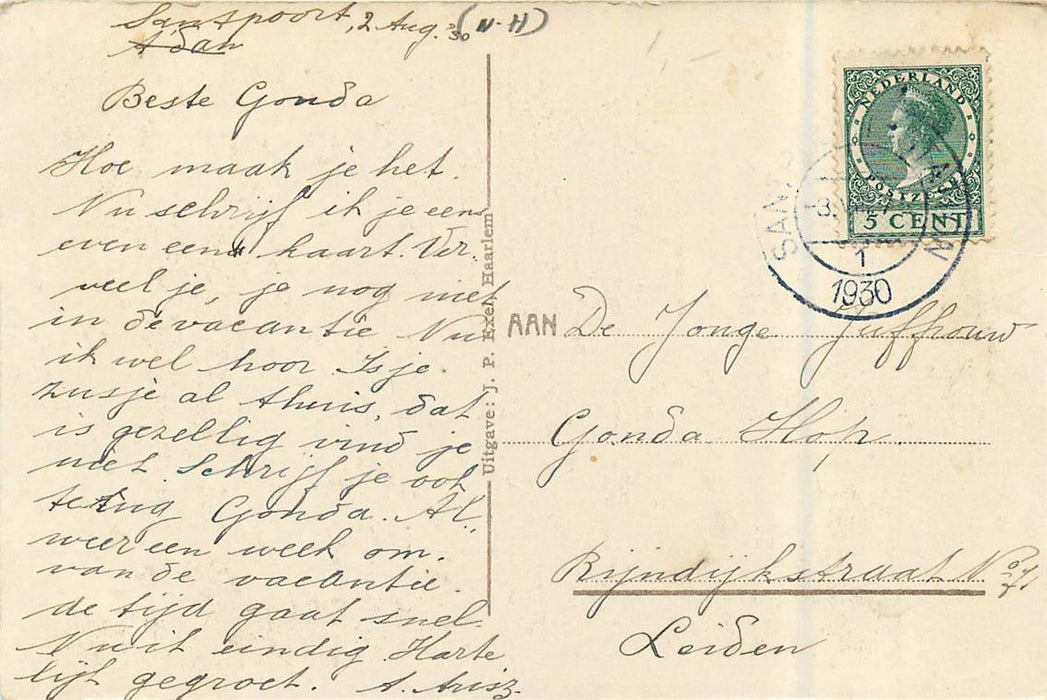 Santpoort, 2 Aug. '30 (N-H)
A'dam
Beste Gonda
Hoe maak je het.
Nu schrijf ik je eens
even een kaart. Ver-
veel je, je nog niet
in de vacantie Nu
ik wel hoor. Is je
zusje al thuis, dat
is gezellig vind je
niet Schrijf je ook
terug Gonda. Al
weer een week om.
van de vacantie.
de tijd gaat snel
Nu it eindig Harte
lijk gegroet. A.
Uitgave: J. P. Exel, Haarlem
NEDERLAND
POSTZEGEL
5 CENT
1
1930
AAN De Jonge Juffrouw
Gonda Hop.
Rijndijkstraat No
Leiden